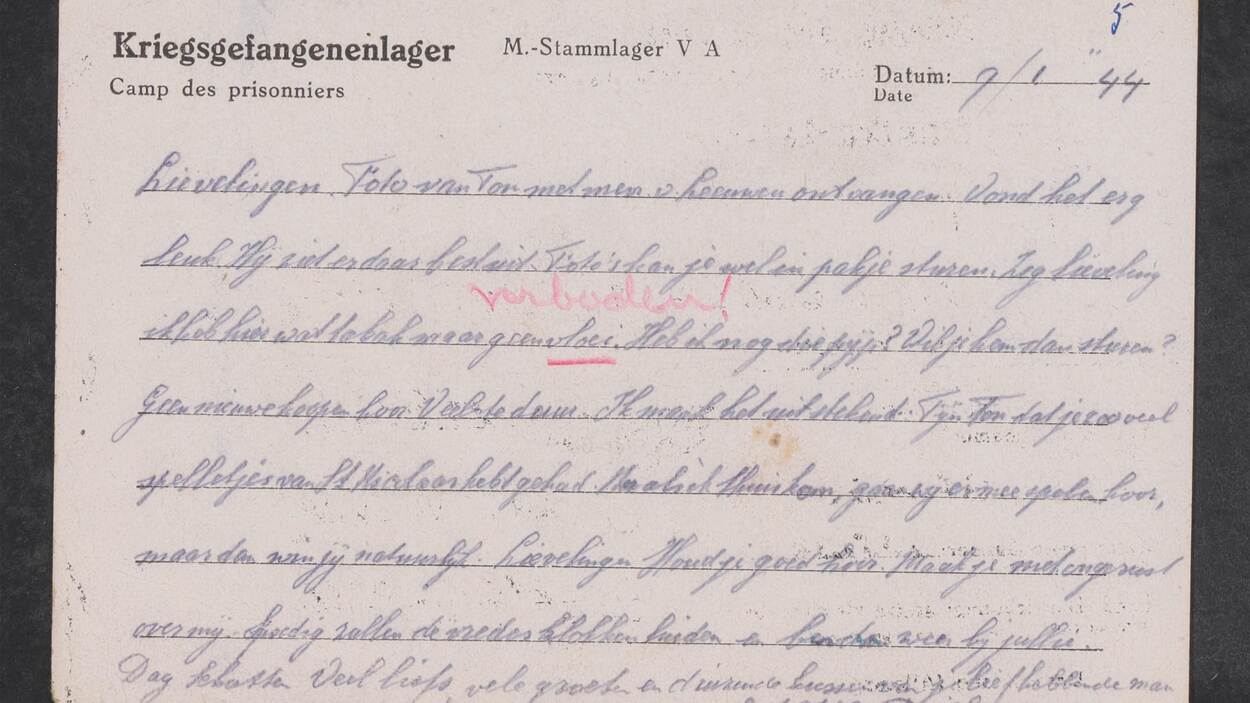 5
Kriegsgefangenenlager M.-Stammlager V A
Camp des prisonniers
Datum: 9/1 44
Date
Lievelingen. Foto van Ton met mevr. v. Leeuwen ontvangen. Vond het erg
leuk. Hij ziet er daar best uit. Foto's kan je wel in pakje sturen. Zeg lieveling
verboden!
ik heb hier wat tabak maar geen vloei. Heb ik nog een pijp? Wil je hem dan sturen?
Geen nieuwe koopen hoor. Veel te duur. Ik maak het uitstekend. Fijn Ton dat je zooveel
spelletjes van St Nicolaas hebt gehad. Als ik thuis kom, gaan wij ermee spelen hoor,
maar dan win jij natuurlijk. Lievelingen Houd je goed hoor. Maak je niet ongerust
over mij. Spoedig zullen de vredes klokken luiden en ben dan weer bij jullie.
Dag schatten Veel liefs, vele groeten en duizend kussen van je liefhebbende man